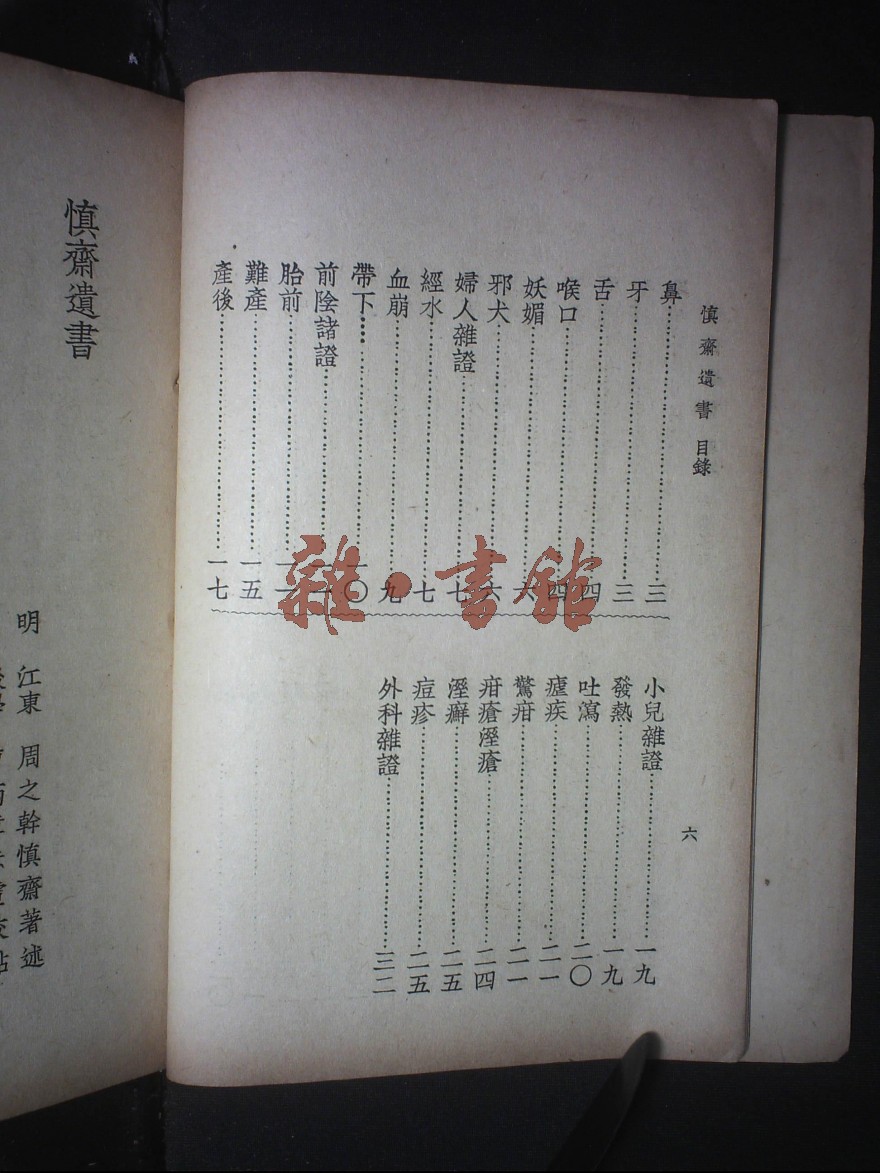 慎齋遺書 目錄
鼻……三
牙……三
舌……四
喉口……四
妖媚……六
邪犬……六
婦人雜證……七
經水……七
血崩……九
帶下……一〇
前陰諸證
胎前
難產……一五
產後……一七
小兒雜證……一九
發熱……一九
吐瀉……二〇
瘧疾……二一
驚疳……二一
疳瘡溼瘡……二四
溼癬……二五
痘疹……二五
外科雜證……三二
六
慎齋遺書
明 江東 周之幹慎齋著述
雜·書館